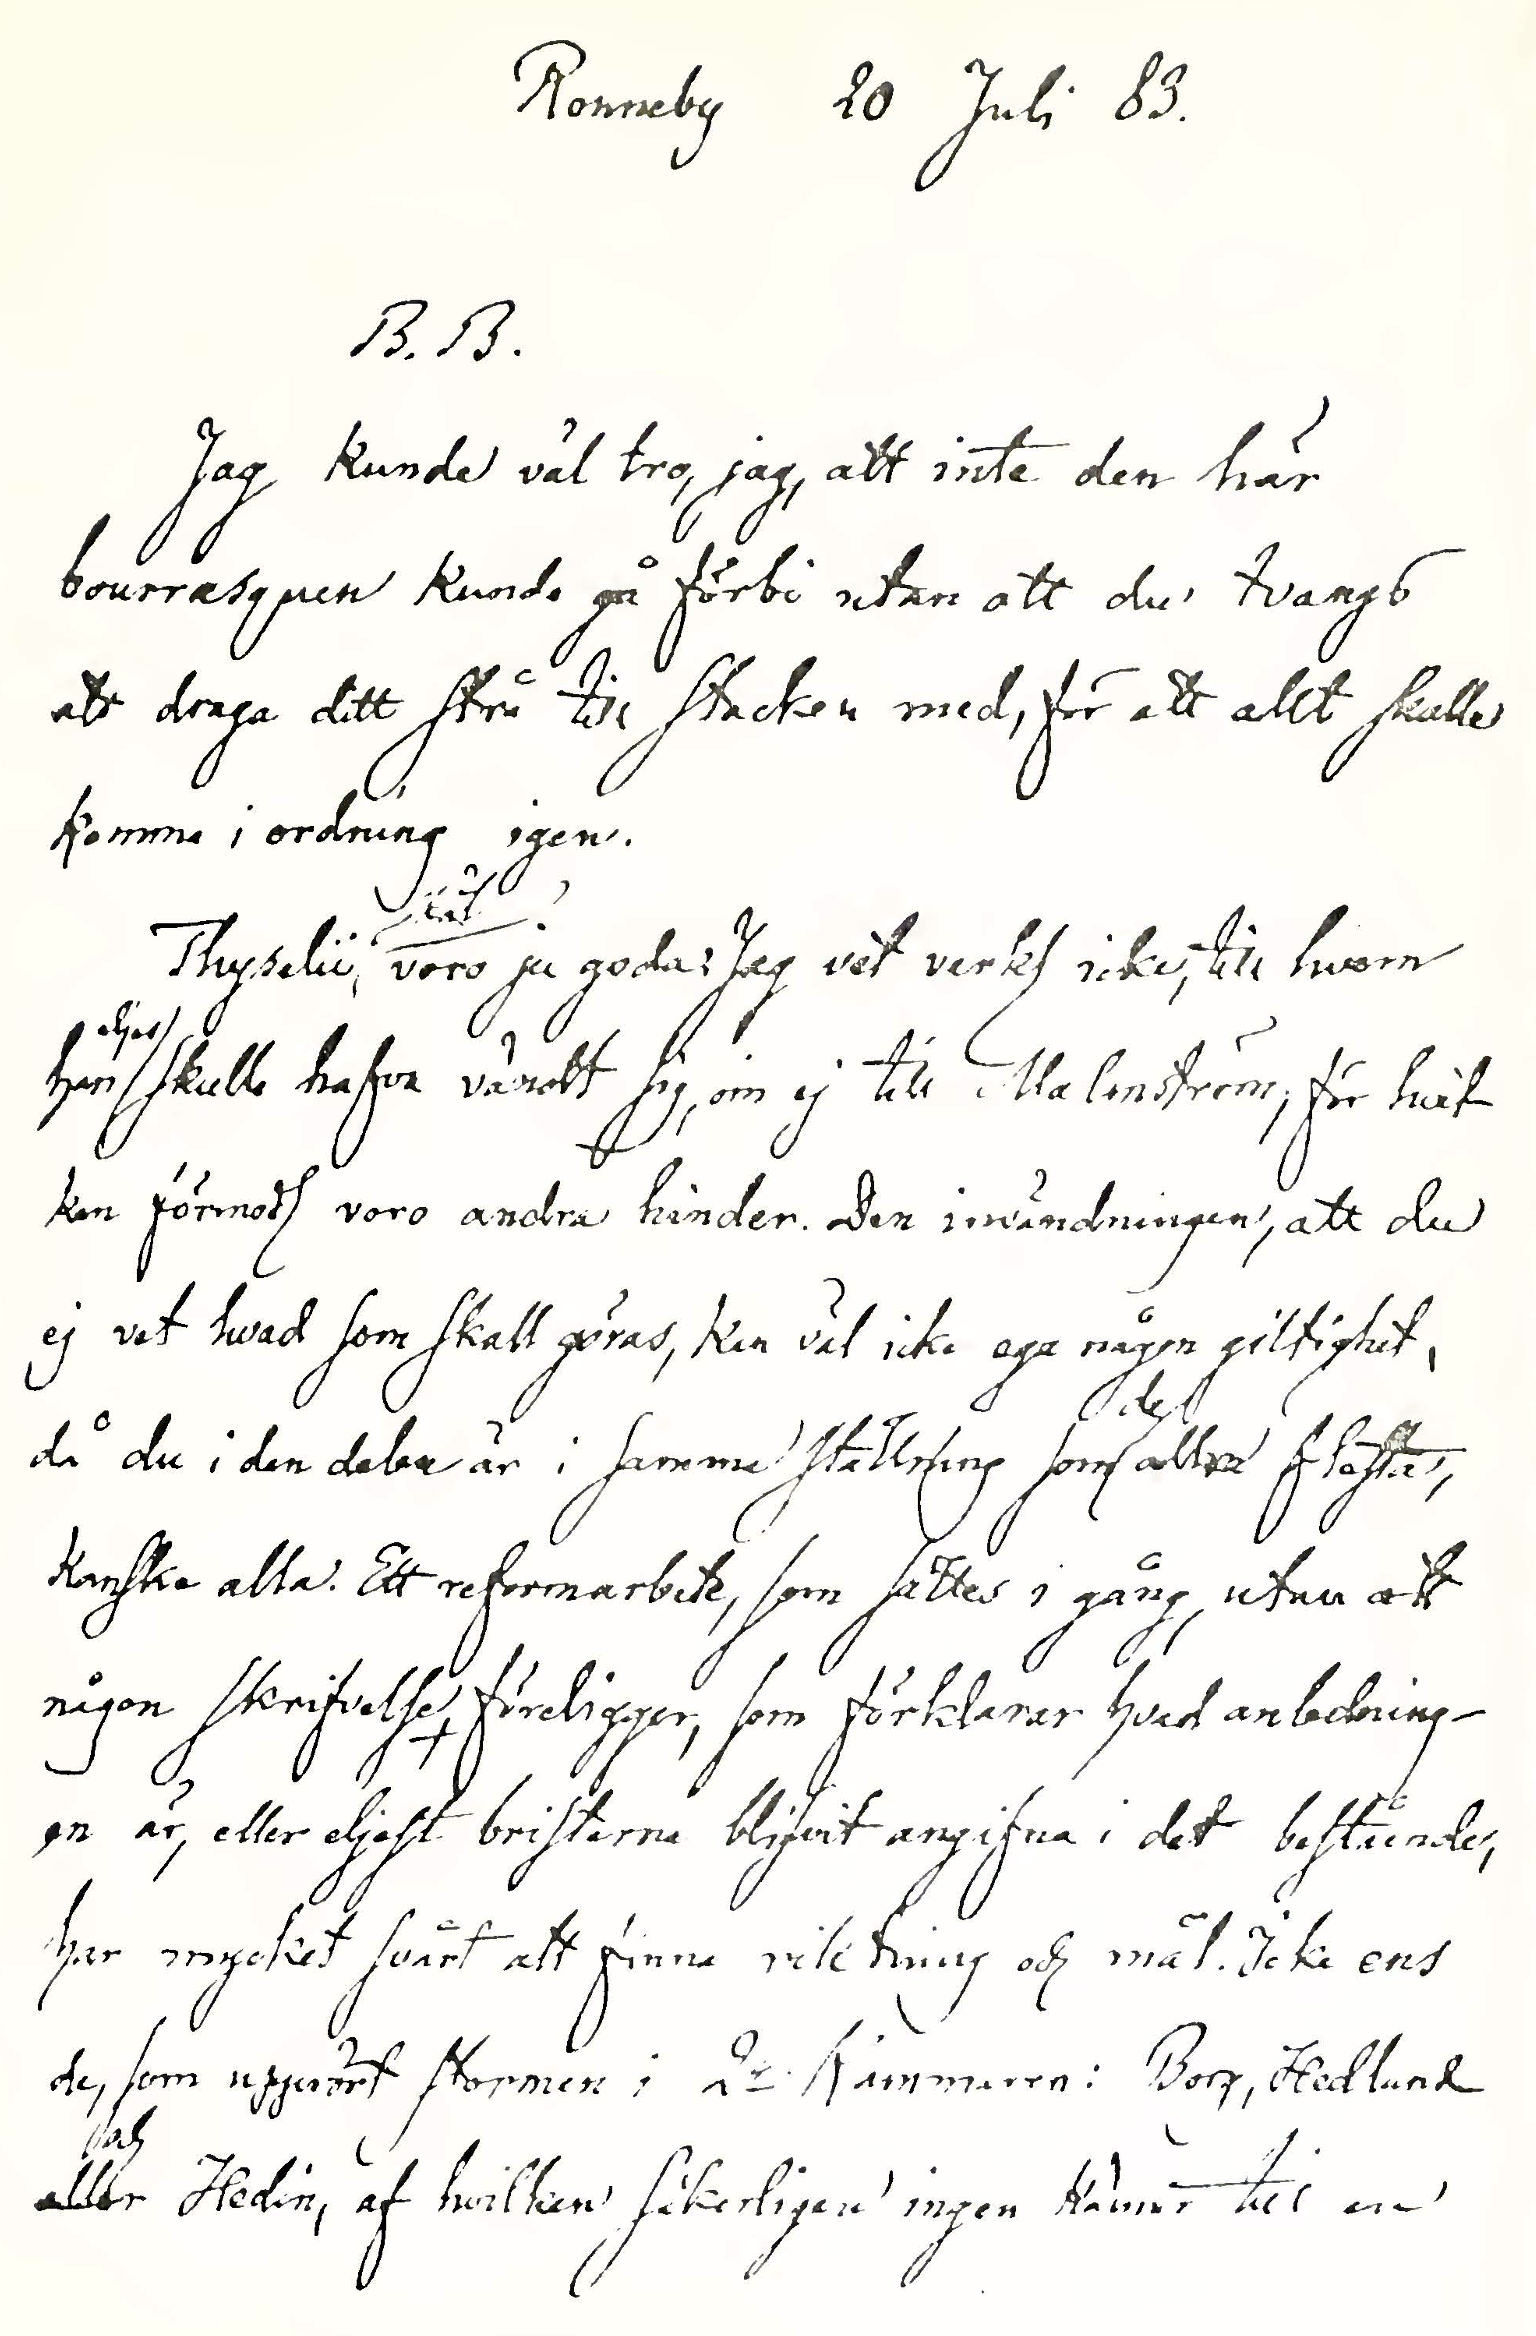 Ronneby 20 Juli 83.
B. B.
Jag kunde väl tro, jag, att inte den här
bourrasquen kunde gå förbi utan att du tvangs
att draga ditt strå till stacken med, för att allt skulle
komma i ordning igen.
Thyselii, voro ju goda. Jag vet verkl icke, till hvem
eljest
han skulle hafva vändt sig, om ej till Malmström, för hvil
ken förmodl voro andra hinder. Den invändningen, att du
ej vet hvad som skall göras, kan väl icke ega någon giltighet,
de
då du i den delen är i samma ställning som allra flesta,
kanske alla. Ett reformarbete, som sättes i gång, utan att
någon skrifvelse föreligger, som förklarar hvad anledning-
en är, eller eljest bristerna blifvit angifna i det bestående,
har mycket svårt att finna riktning och mål. Icke ens
de, som uppvört stormen i 2a Kammaren: Borg, Hedlund
och
eller Hedin, af hvilken säkerligen ingen känner till en